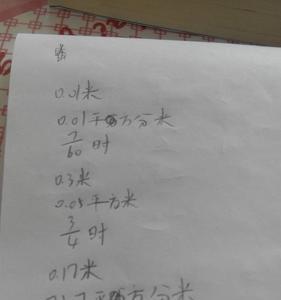 0.01米
0.01平方分米
7/60 时
0.3米
0.05平方米
3/4 时
0.17米
平方分米